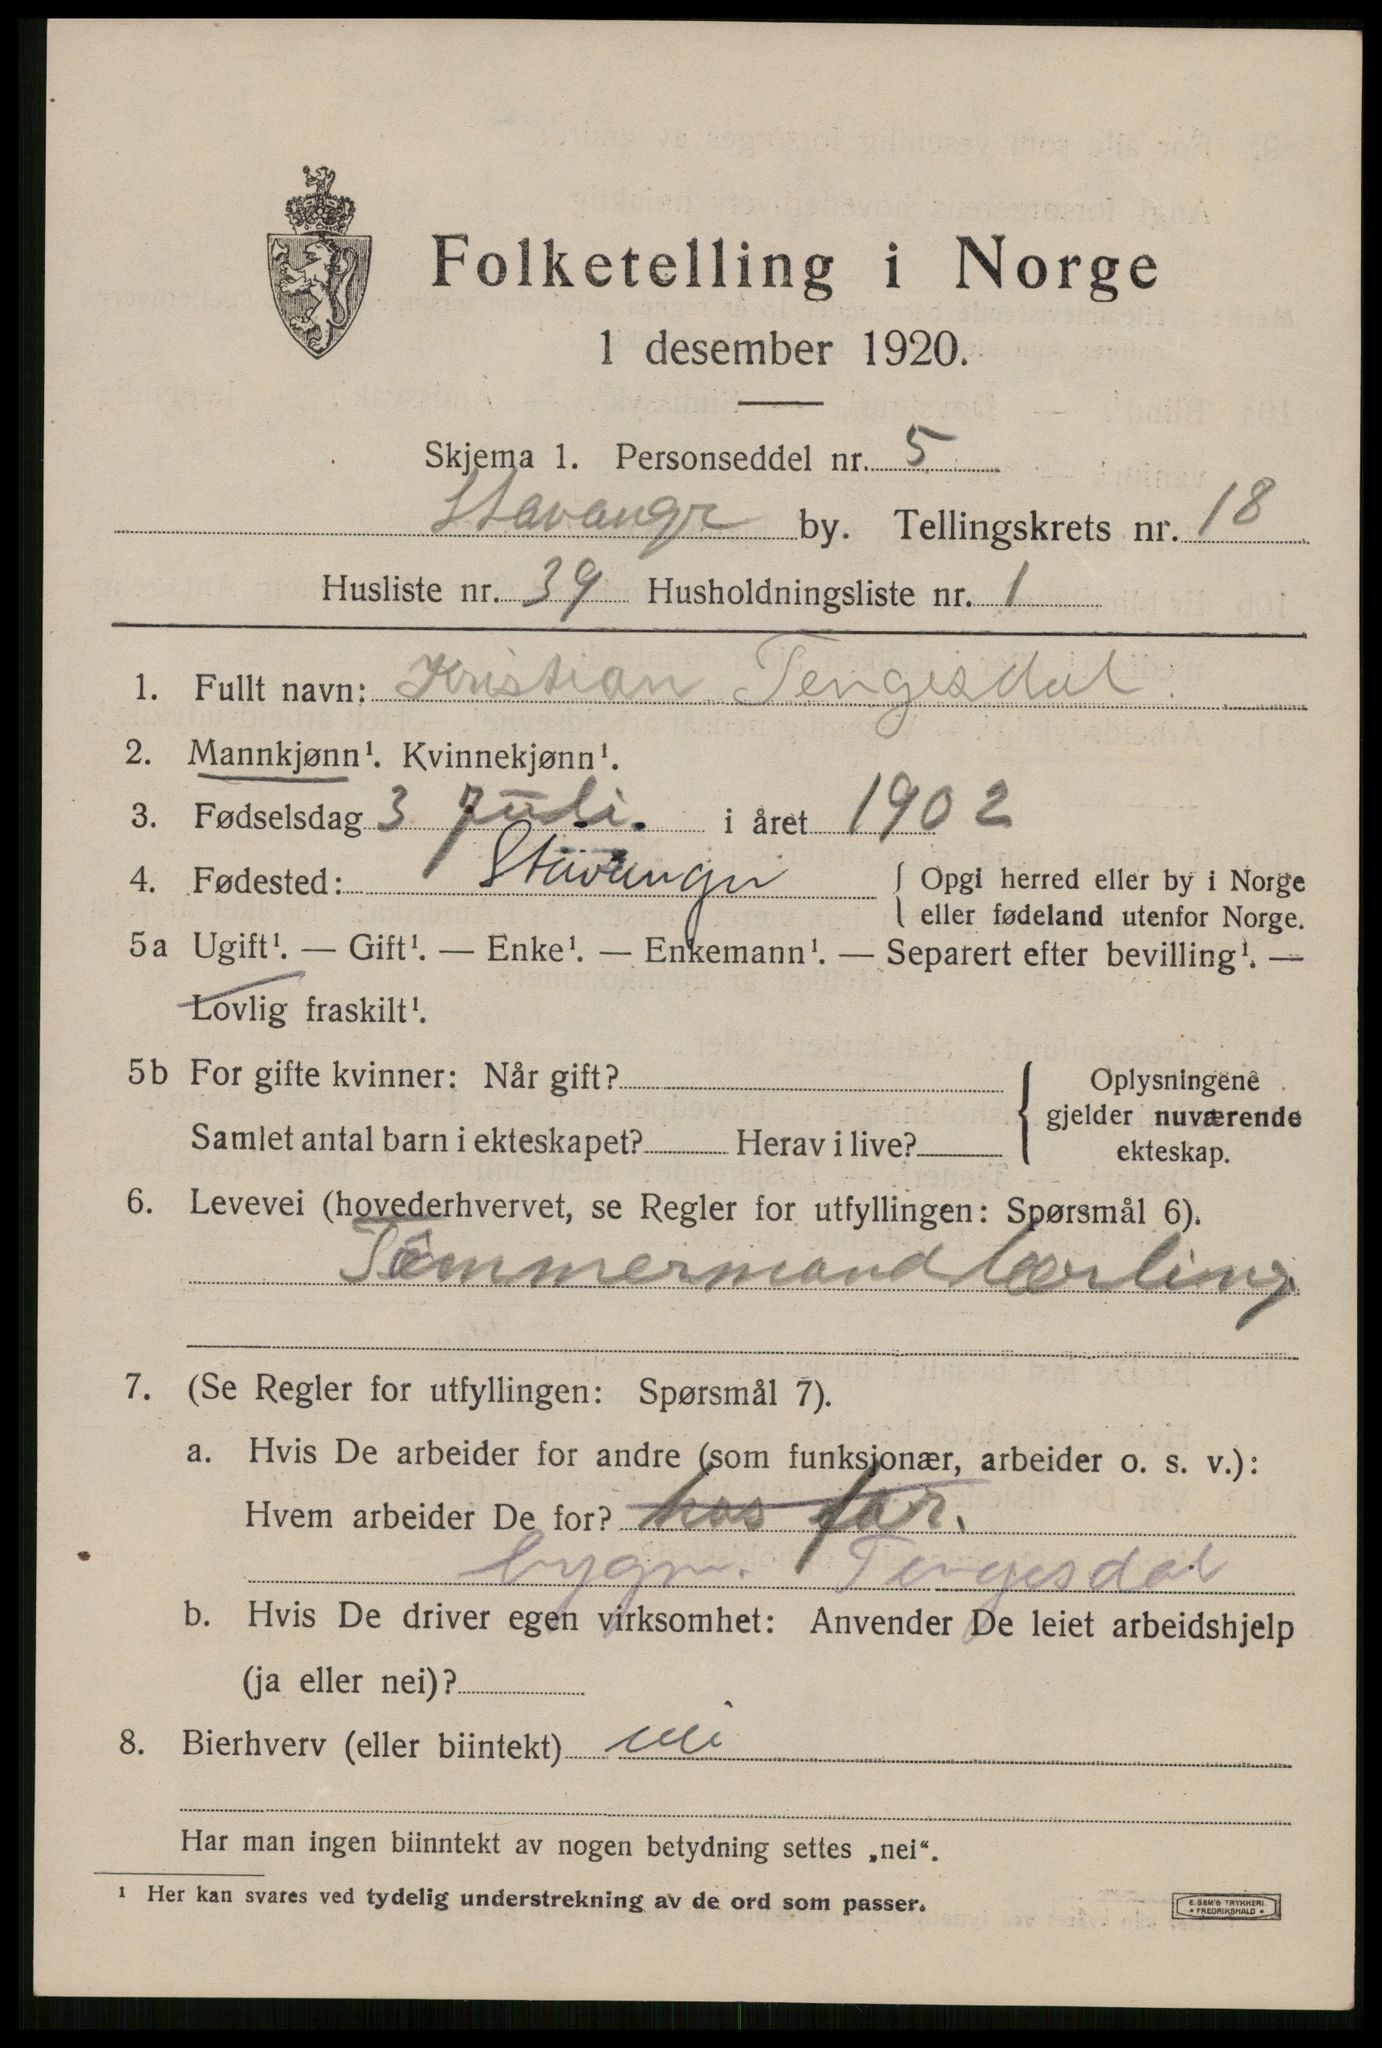 Folketelling i Norge
1 desember 1920.
Skjema 1. Personseddel nr. 5
Stavangr by. Tellingskrets nr. 18
Husliste nr. 39 Husholdningsliste nr. 1
1. Fullt navn: Kristian Tengesdal.
2. Mannkjønn¹. Kvinnekjønn¹.
3. Fødselsdag 3 juli. i året 1902
4. Fødested: Stavanger { Opgi herred eller by i Norge
eller fødeland utenfor Norge.
5a Ugift¹. — Gift¹. — Enke¹. — Enkemann¹. — Separert efter bevilling¹. —
Lovlig fraskilt¹.
5b For gifte kvinner: Når gift? { Oplysningene
gjelder nuværende
Samlet antal barn i ekteskapet? Herav i live?
ekteskap.
6. Levevei (hovederhvervet, se Regler for utfyllingen: Spørsmål 6).
Tømmermand Lærling
7. (Se Regler for utfyllingen: Spørsmål 7).
a. Hvis De arbeider for andre (som funksjonær, arbeider o. s. v.):
Hvem arbeider De for? hos far.
bygm. Tengesdal
b. Hvis De driver egen virksomhet: Anvender De leiet arbeidshjelp
(ja eller nei)?
8. Bierhverv (eller biintekt) nei
Har man ingen biinntekt av nogen betydning settes „nei“.
¹ Her kan svares ved tydelig understrekning av de ord som passer.
E. SEM'S TRYKKERI
• FREDRIKSHALD •